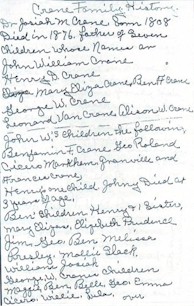 Crane Family History.
Dr Josiah M Crane Born 1808
Died in 1876. father of Seven
Children whose Names an
John William Crane
Henry D. Crane
Mary Eliza Crane, Ben F. Crane
George W. Crane
Leonard Van Crane Alison W. Crane
John W's Children the following,
Benjamin F. Crane Geo Roland
Cicero Granville and
Francis Crane,
Henry one Child Johny Died at
3 years of age,
Ben Children Henry & Sister,
Mary Eliza, Elizabeth
Jim, Geo, Ben Melissa
Presley, Mollie
Willie Josiah
George W. Cranes Children
Maggie Ben, Belle, Geo Emma
Cicero, Willie, Lula, over